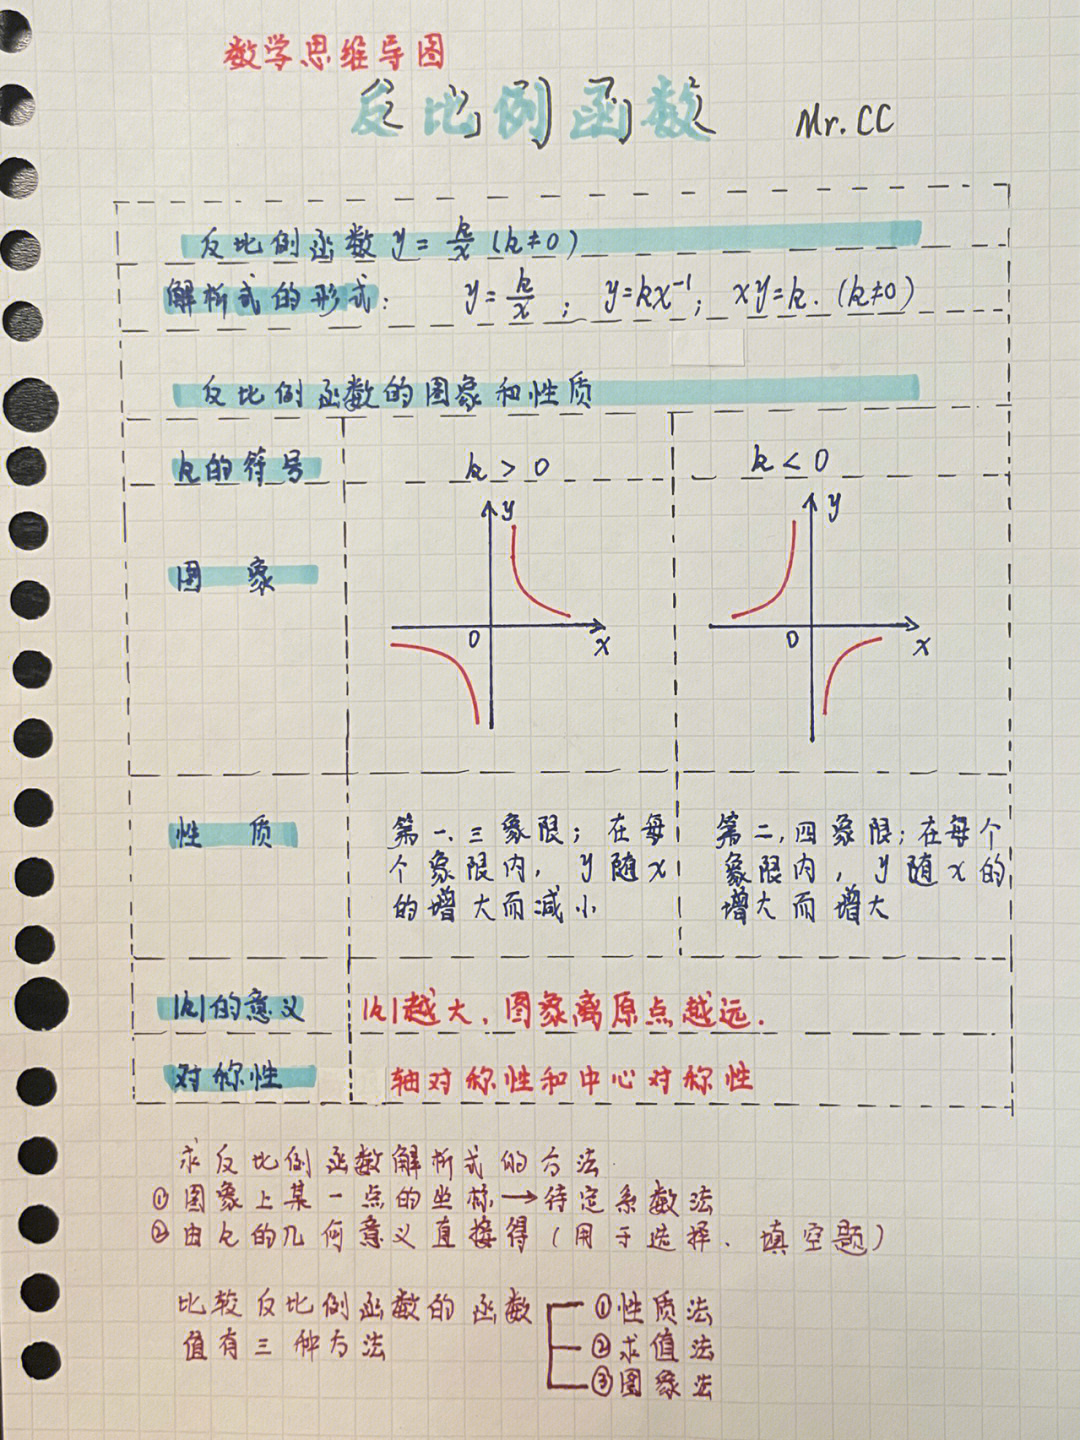 数学思维导图
反比例函数 Mr. CC
反比例函数 y = k/x (k≠0)
解析式的形式: y = k/x ; y=kx⁻¹; xy=k. (k≠0)
反比例函数的图象和性质
k的符号 k > 0 k < 0
图 象
y y
0 x 0 x
性 质
第一、三象限; 在每
个象限内, y随x
的增大而减小
第二,四象限; 在每个
象限内, y随x的
增大而增大
|k|的意义 |k|越大, 图象离原点越远.
对称性 轴对称性和中心对称性
求反比例函数解析式的方法
① 图象上某一点的坐标→待定系数法
② 由k的几何意义直接得 (用于选择、填空题)
比较反比例函数的函数
值有三种方法
①性质法
②求值法
③图象法